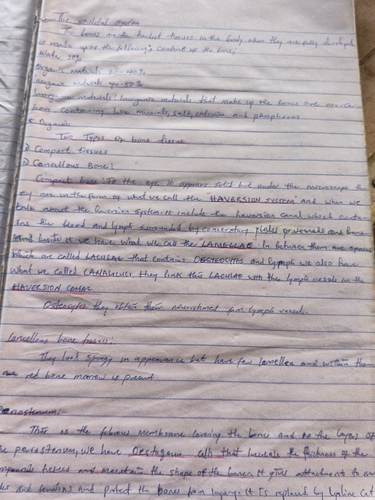 The skeletal system
The bones are the hardest tissues in the body when they are fully developed
is made up of the following content of the bone;
Water 20%
Organic materials 30-40%
Inorganic materials 40-50%
Inorganic materials: Inorganic materials that make up the bones are
bone containing like minerals, salts, calcium and phosphorus
& Organic
Two Types of bone tissue
1) Compact tissues
2) Cancellous Bone:
Compact bone To the eye it appears solid but under the microscope
they are in the form of what we call the "HAVERSION SYSTEM and when we
talk about the haversian system it include the haversian canal which contain
the blood and lymph surrounded by concentray plates of
and beside it we have what we call the LAMELLAE. In between them are spaces
which are called LACULAE that contains OESTEOCYTES and lymph we also have
what we called CANALICULI they link this LACULAE with the lymph vessels in the
HAVERSION CANAL
Osteocytes they obtain their nourishment from lymph vessels.
Cancellous bone tissues:
They look spongy in appearance but have few lamellea and within them
red bone marrow is present
Periosteum:
This is the fibrous membrane covering the bones and on the layers of
the periosteum, we have cells that increase the thickness of the
tissues and maintain the shape of the bones it gives attachment to
and tendons and protect the bones from injury. It is replaced by